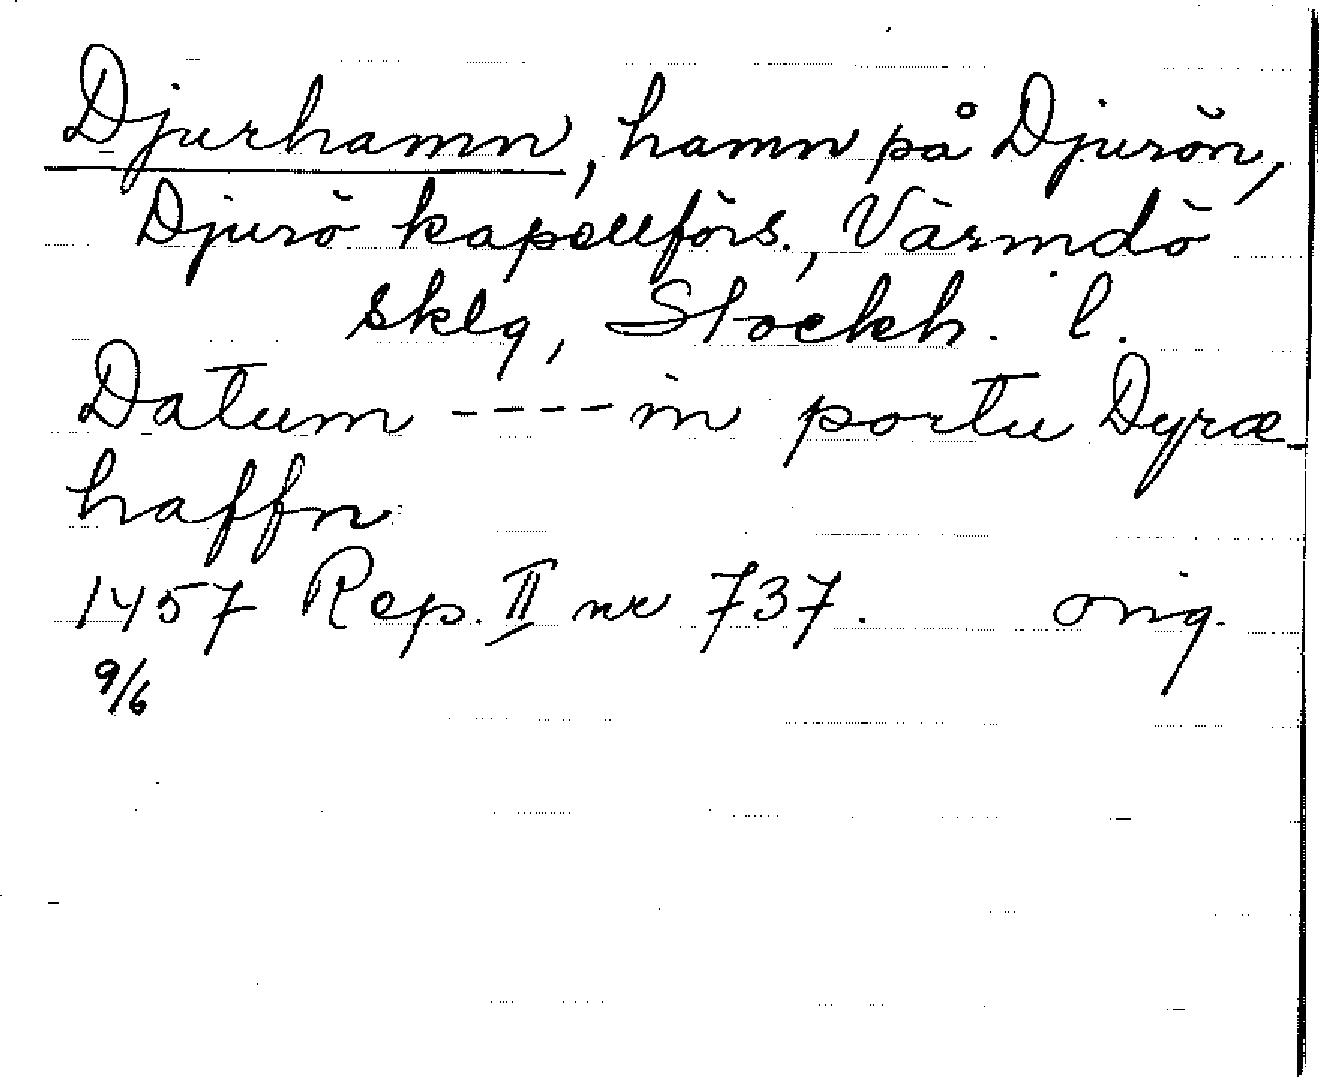 Djurhamn, hamn på Djurön,
Djurö kapellförs., Värmdö
sklg, Stockh. l.
Datum ---- in portu Dyræ-
haffn
1457 Rep. II nr 737. orig.
9/6